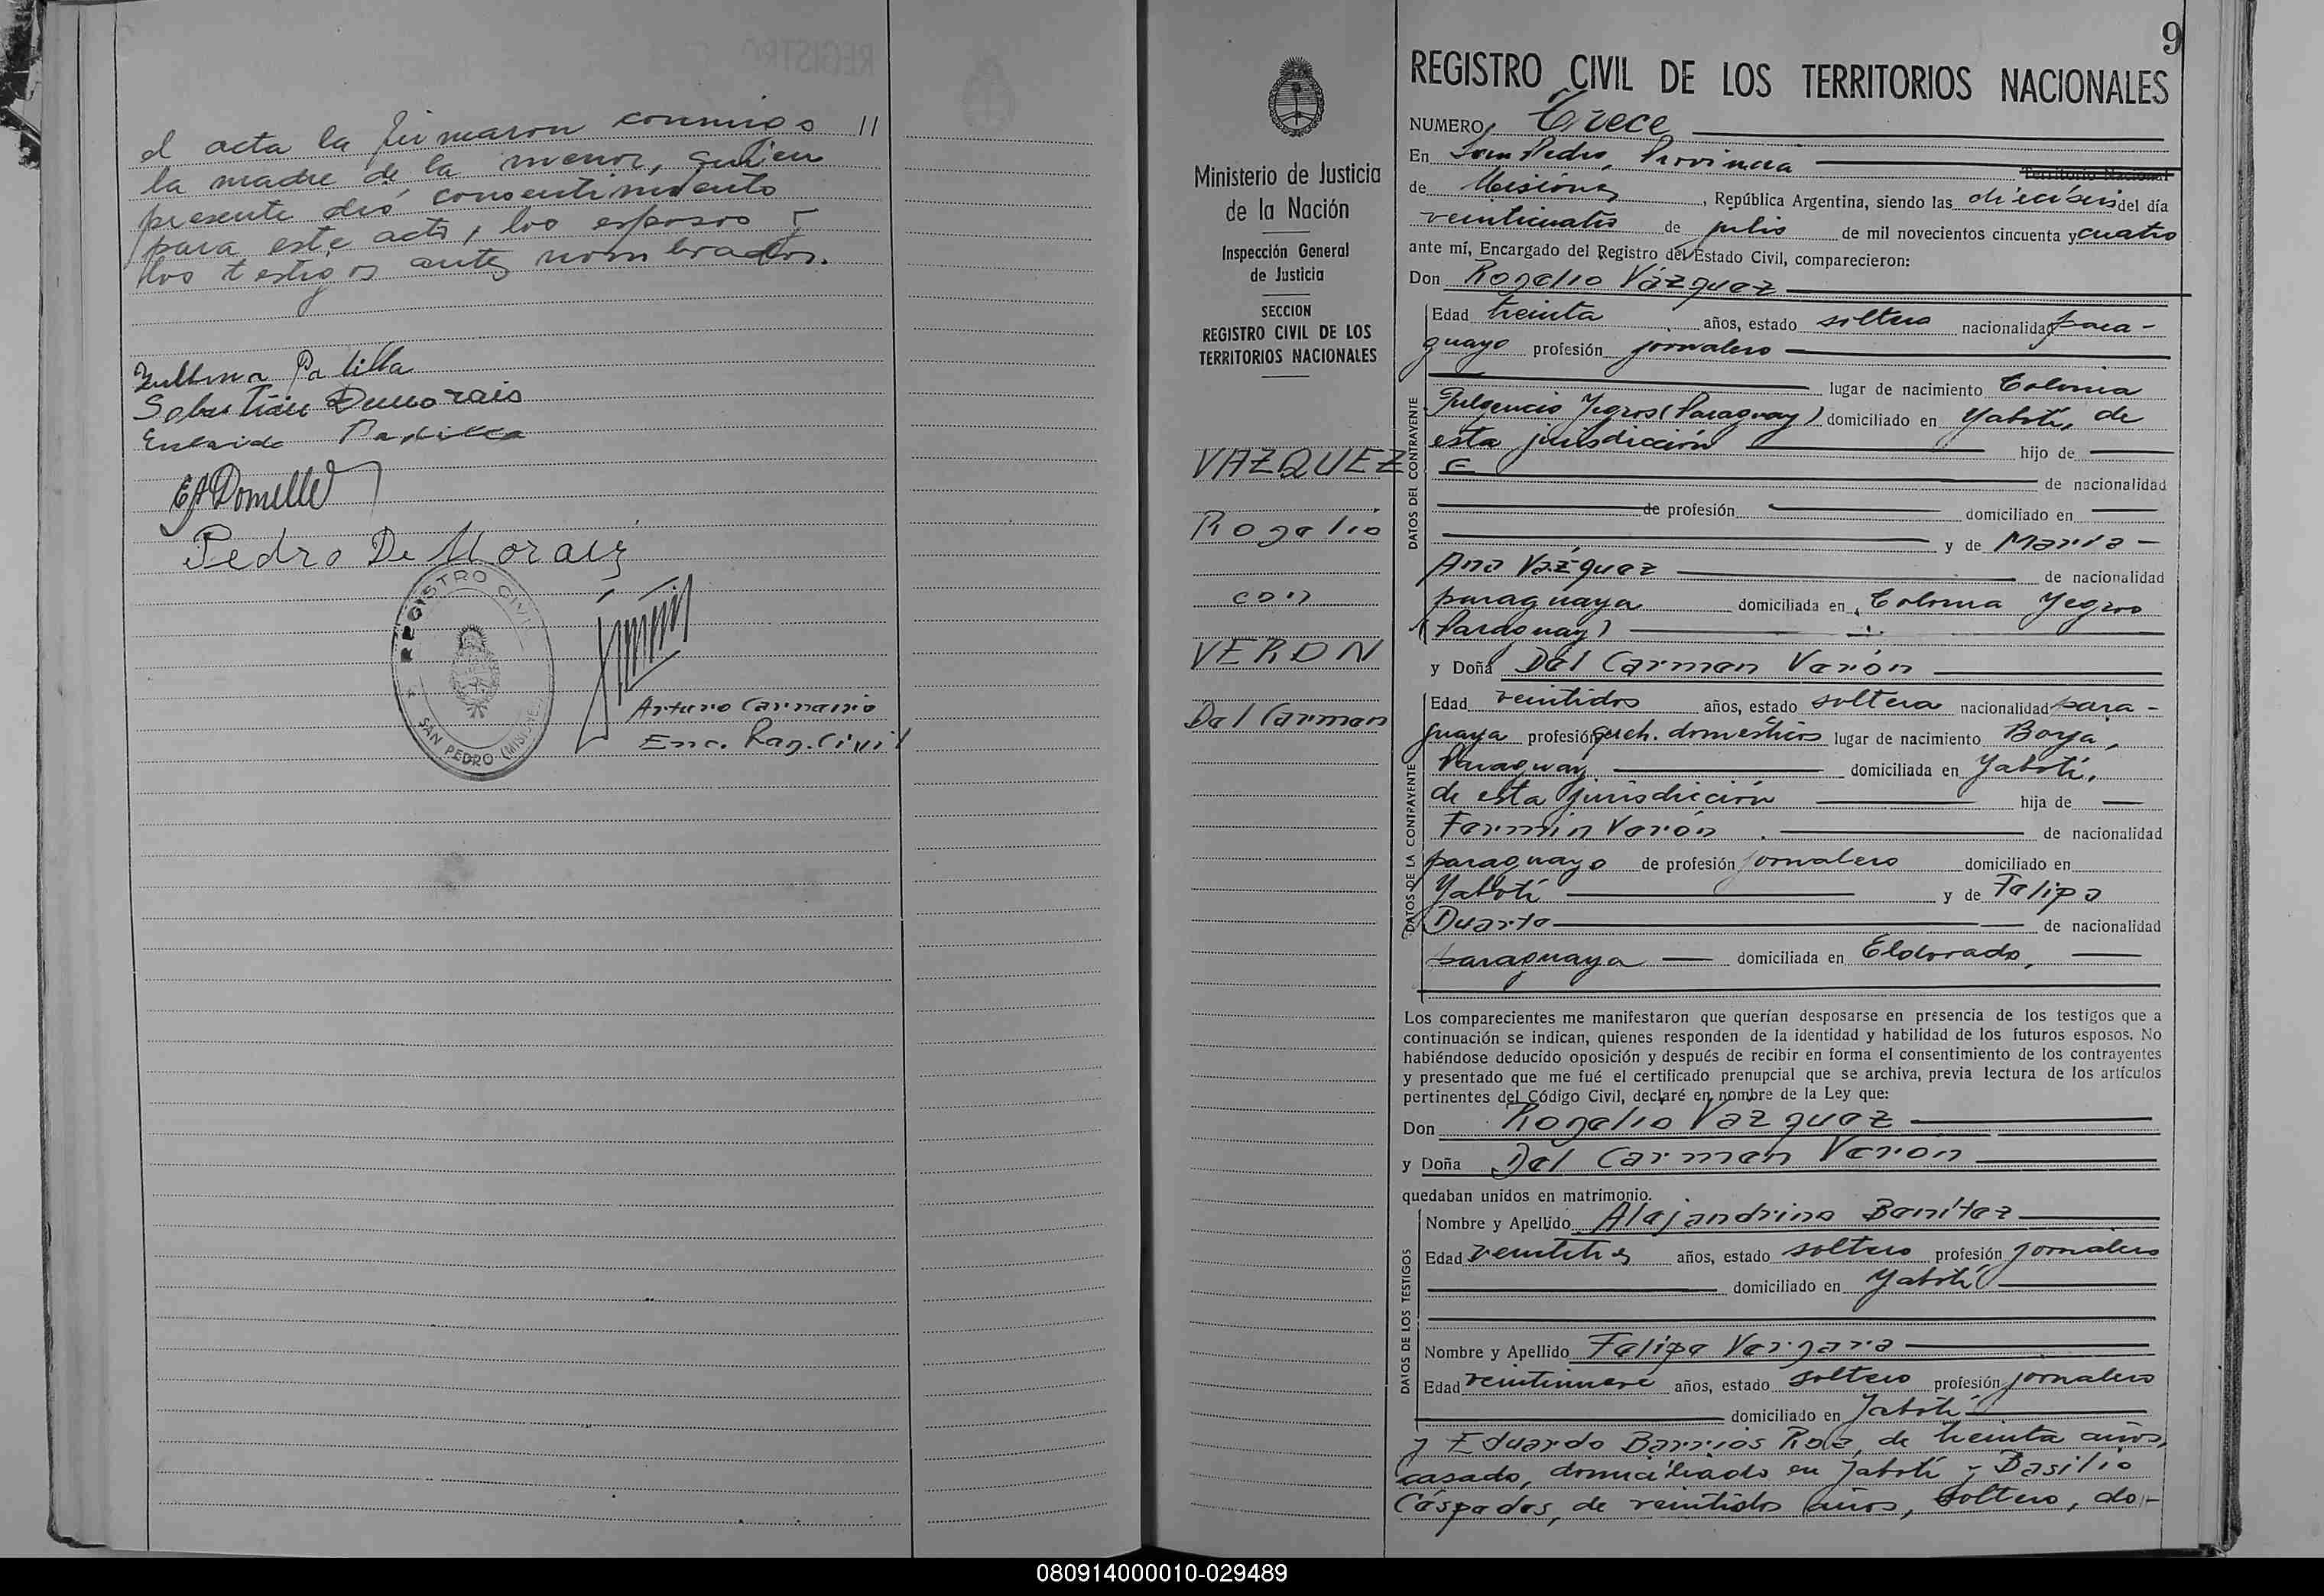 el acta la firmaron conmigo //
la madre de la menor, quien
presente dió consentimiento
para este acto, los esposos y
los testigos antes nombrados.
Zulma Padilla
Sebastián Demorais
Padilla
Pedro De Moraiz
REGISTRO CIVIL
SAN PEDRO (MISIONES)
Arturo
Enc. Reg. Civil
9
REGISTRO CIVIL DE LOS TERRITORIOS NACIONALES
Ministerio de Justicia
de la Nación
Inspección General
de Justicia
SECCION
REGISTRO CIVIL DE LOS
TERRITORIOS NACIONALES
VAZQUEZ
Rogelio
con
VERON
Del Carmen
NUMERO Trece
En San Pedro, Provincia Territorio Nacional
de Misiones, República Argentina, siendo las dieciséis del día
veinticuatro de julio de mil novecientos cincuenta y cuatro
ante mí, Encargado del Registro del Estado Civil, comparecieron:
Don Rogelio Vázquez
DATOS DEL CONTRAYENTE
Edad treinta años, estado soltero nacionalidad para-
guayo profesión jornalero
lugar de nacimiento Colonia
Fulgencio Yegros (Paraguay) domiciliado en Yabotí, de
esta jurisdicción hijo de
de nacionalidad
de profesión domiciliado en
y de María
Ana Vázquez de nacionalidad
paraguaya domiciliada en Colonia Yegros
(Paraguay)
y Doña Del Carmen Verón
DATOS DE LA CONTRAYENTE
Edad veintidos años, estado soltera nacionalidad para-
guaya profesión queh. domésticos lugar de nacimiento Borja,
Paraguay domiciliada en Yabotí,
de esta jurisdicción hija de
Fermín Verón de nacionalidad
paraguayo de profesión jornalero domiciliado en
Yabotí y de Felipa
Duarte de nacionalidad
paraguaya domiciliada en Eldorado,
Los comparecientes me manifestaron que querían desposarse en presencia de los testigos que a
continuación se indican, quienes responden de la identidad y habilidad de los futuros esposos. No
habiéndose deducido oposición y después de recibir en forma el consentimiento de los contrayentes
y presentado que me fué el certificado prenupcial que se archiva, previa lectura de los artículos
pertinentes del Código Civil, declaré en nombre de la Ley que:
Don Rogelio Vazquez
y Doña Del Carmen Verón
quedaban unidos en matrimonio.
DATOS DE LOS TESTIGOS
Nombre y Apellido Alejandrino Benítez
Edad años, estado soltero profesión jornalero
domiciliado en Yabotí
Nombre y Apellido Felipe Vergara
Edad veintinueve años, estado soltero profesión jornalero
domiciliado en Yabotí
y Eduardo Barrios Roa, de treinta años,
casado, domiciliado en Yabotí y Basilio
Céspedes, de veintidos años, soltero, do-
080914000010-029489